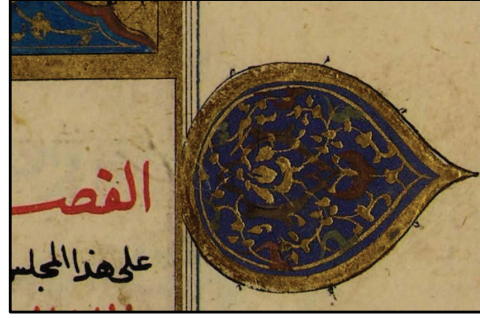 الفصـ
على هذا المجلس